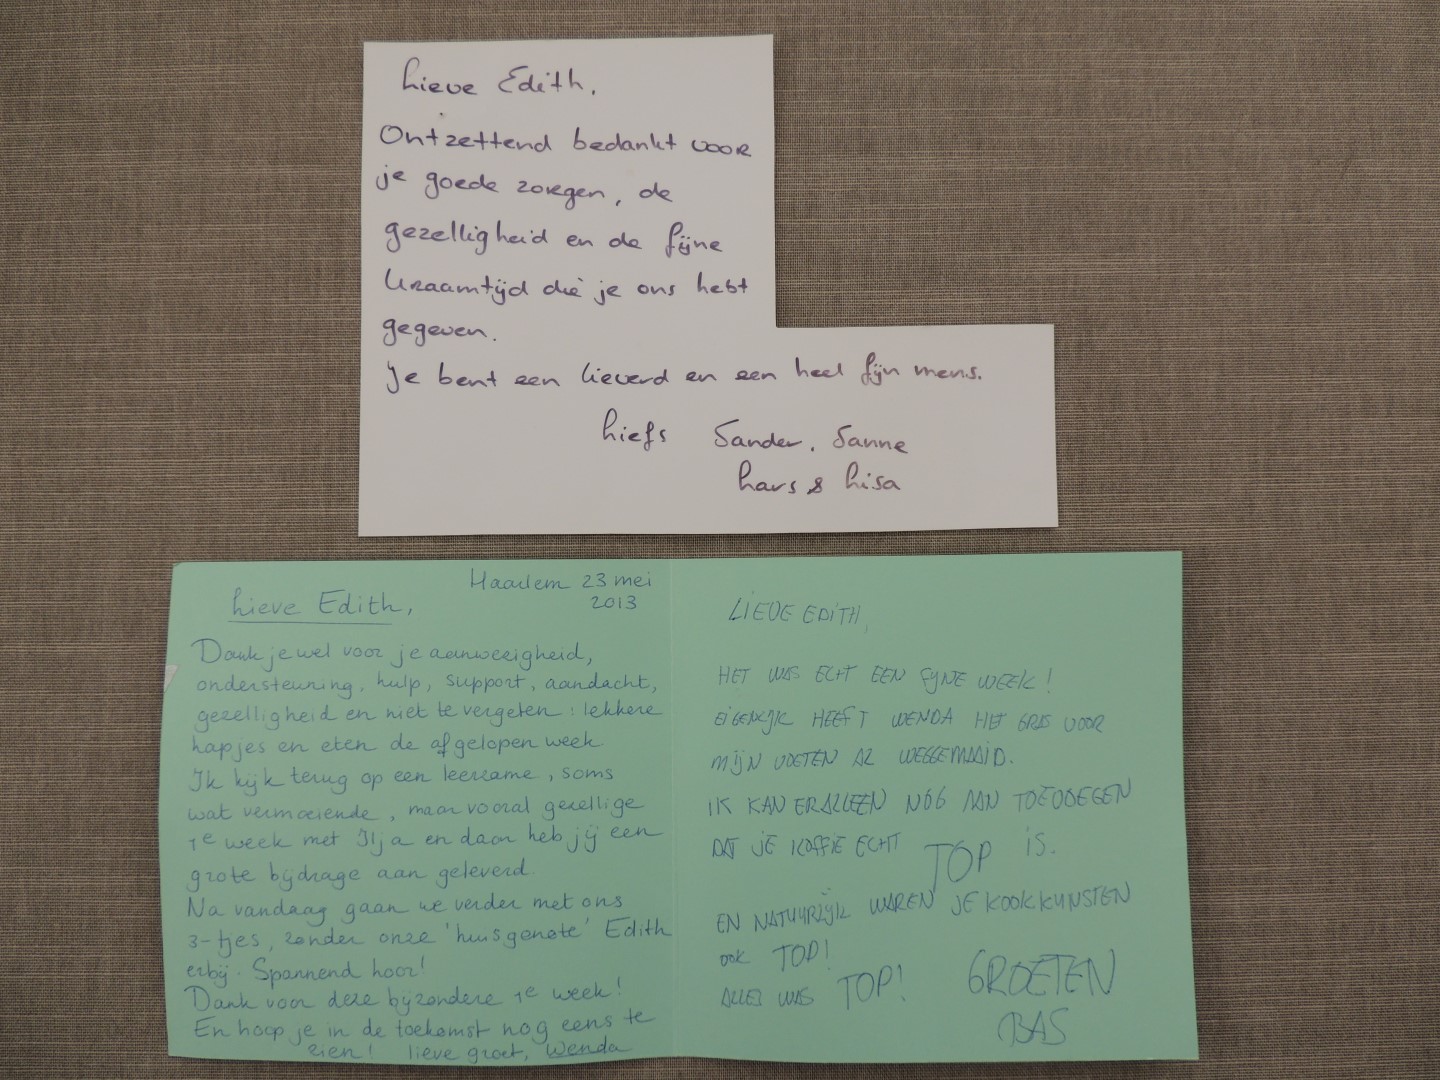 Lieve Edith,
Ontzettend bedankt voor
je goede zorgen, de
gezelligheid en de fijne
kraamtijd die je ons hebt
gegeven.
Je bent een lieverd en een heel fijn mens.
Liefs Sander, Sanne
Lars & Lisa
Haarlem 23 mei
2013
Lieve Edith,
Dank je wel voor je aanwezigheid,
ondersteuning, hulp, support, aandacht,
gezelligheid en niet te vergeten: lekkere
hapjes en eten de afgelopen week
Ik kijk terug op een leerzame, soms
wat vermoeiende, maar vooral gezellige
1e week met Ilja en daar heb jij een
grote bijdrage aan geleverd.
Na vandaag gaan we verder met ons
3-tjes, zonder onze 'huisgenote' Edith
erbij. Spannend hoor!
Dank voor deze bijzondere 1e week!
En hoop je in de toekomst nog eens te
zien! lieve groet, Wenda
LIEVE EDITH,
HET WAS ECHT EEN FIJNE WEEK!
EIGENLIJK HEEFT WENDA HET GRAS VOOR
MIJN VOETEN AL WEGGEMAAID.
IK KAN ER ALLEEN NOG AAN TOEVOEGEN
DAT JE KOFFIE ECHT TOP IS.
EN NATUURLIJK WAREN JE KOOKKUNSTEN
OOK TOP!
ALLES WAS TOP! GROETEN
BAS